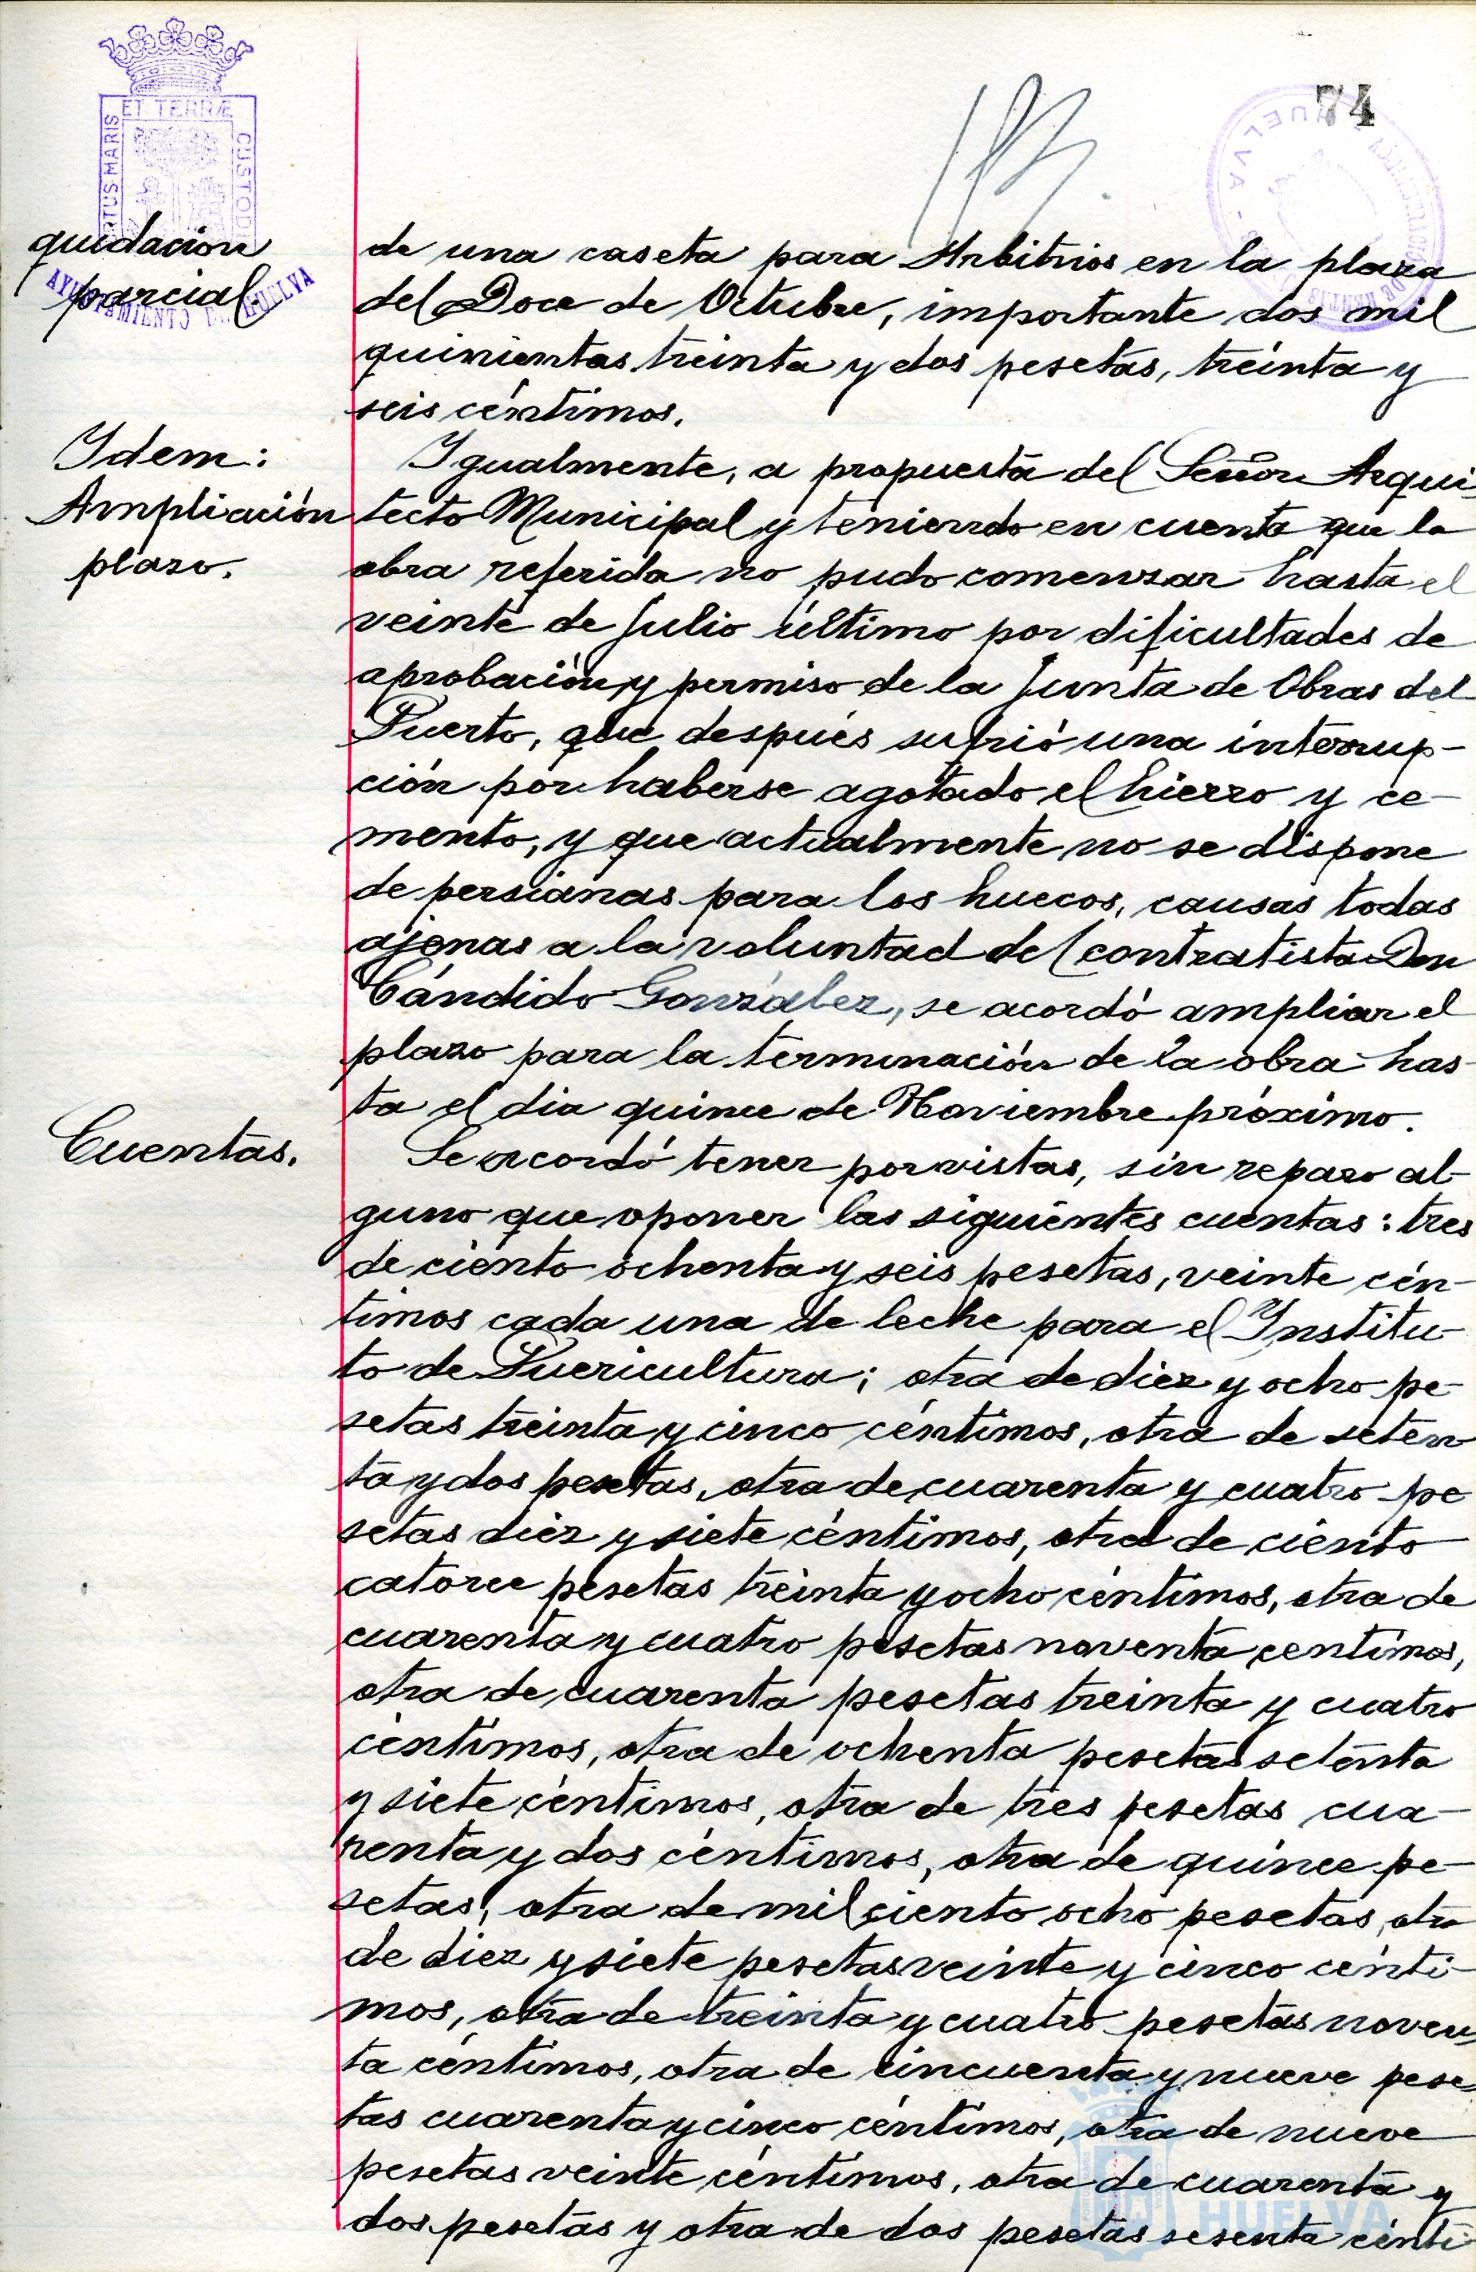 74
PORTUS MARIS
ET TERRÆ
CUSTODIA
AYUNTAMIENTO DE HUELVA
HUELVA
quidacion
parcial
de una caseta para Arbitrios en la plaza
del Doce de Octubre, importante dos mil
quinientas treinta y dos pesetas, treinta y
seis céntimos.
Idem:
Ampliación
plazo.
Igualmente, a propuesta del Señor Arqui-
tecto Municipal y teniendo en cuenta que la
obra referida no pudo comenzar hasta el
veinte de Julio último por dificultades de
aprobación y permiso de la Junta de Obras del
Puerto, que después sufrió una interrup-
ción por haberse agotado el hierro y ce-
mento, y que actualmente no se dispone
de persianas para los huecos, causas todas
ajenas a la voluntad del contratista Don
Cándido González, se acordó ampliar el
plazo para la terminación de la obra has-
ta el dia quince de Noviembre próximo.
Cuentas.
Se acordó tener por vistas, sin reparo al-
guno que oponer las siguientes cuentas: tres
de ciento ochenta y seis pesetas, veinte cén-
timos cada una de leche para el Institu-
to de Puericultura; otra de diez y ocho pe-
setas treinta y cinco céntimos, otra de seten
ta y dos pesetas, otra de cuarenta y cuatro pe
setas diez y siete céntimos, otra de ciento
catorce pesetas treinta y ocho céntimos, otra de
cuarenta y cuatro pesetas noventa centimos,
otra de cuarenta pesetas treinta y cuatro
céntimos, otra de ochenta pesetas setenta
y siete céntimos, otra de tres pesetas cua-
renta y dos céntimos, otra de quince pe-
setas, otra de mil ciento ocho pesetas, otra
de diez y siete pesetas veinte y cinco cénti-
mos, otra de treinta y cuatro pesetas noven
ta céntimos, otra de cincuenta y nueve pese-
tas cuarenta y cinco céntimos, otra de nueve
pesetas veinte céntimos, otra de cuarenta y
dos pesetas y otra de dos pesetas sesenta cénti-
HUELVA